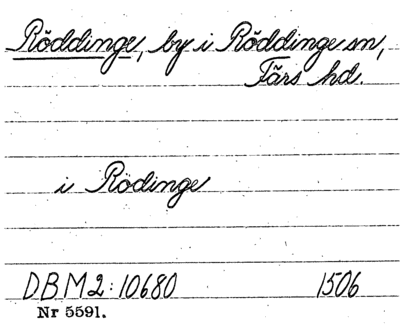 Röddinge, by i Röddinge sn,
Färs hd.
i Rödinge
DBM2:10680 1506
Nr 5591.